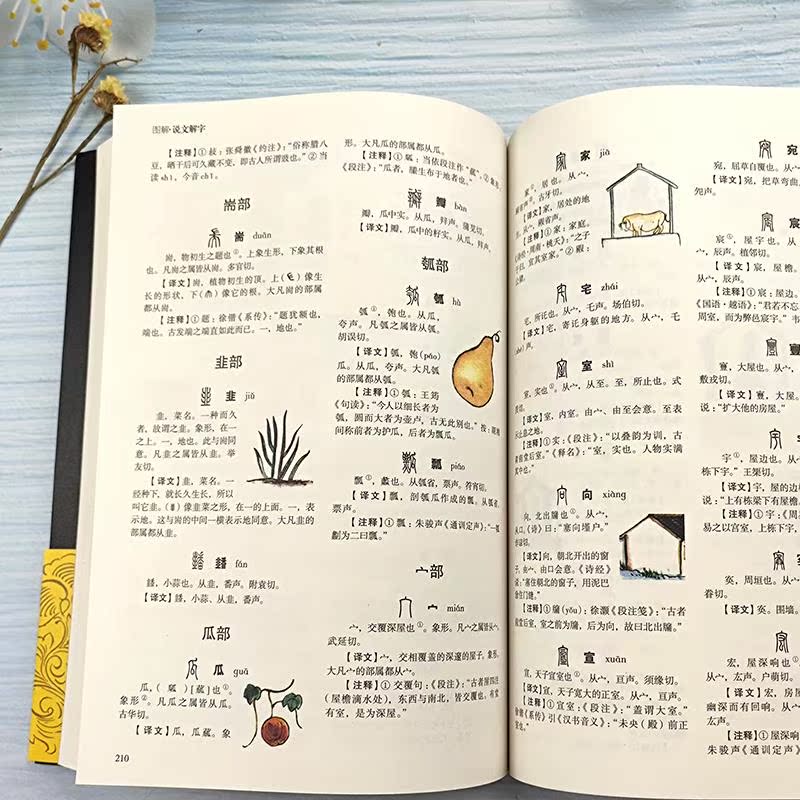 图解·说文解字
【注释】①敊：张舜徽《约注》：“俗称腊八
豆，晒干后可久藏不变，即古人所谓豉也。”②当
读shì，今音chǐ。
耑部
耑 duān
耑，物初生之题也①。上象生形，下象其根
也。凡耑之属皆从耑。多官切。
【译文】耑，植物初生的顶。上像生
长的形状，下像它的根。大凡耑的部属
都从耑。
【注释】①题：徐锴《系传》：“题犹额也，
端也。古发端之端直如此而已。一，地也。”
韭部
韭 jiǔ
韭，菜名。一种而久
者，故谓之韭。象形，在一
之上。一，地也。此与耑同
意。凡韭之属皆从韭。举
友切。
【译文】韭，菜名。一
经种下，就长久生长，所以
叫它韭。像韭菜之形，在一的上面。一，表
示地。这与耑的中间一横表示地同意。大凡韭的
部属都从韭。
fán
，小蒜也。从韭，番声。附袁切。
【译文】小蒜。从韭，番声。
瓜部
瓜 guā
形。凡瓜之属皆从瓜。
古华切。
【译文】瓜，瓜蓏。象
210
形。大凡瓜的部属都从瓜。
《段注》：“瓜者，縢生布于地者也。”
瓣 bàn
瓣，瓜中实。从瓜，辡声。蒲苋切。
【译文】瓣，瓜中的籽实。从瓜，辡声。
瓠部
瓠 hù
瓠①，匏也。从瓜，
夸声。凡瓠之属皆从瓠。
胡误切。
【译文】瓠，匏(páo)
瓜。从瓜，夸声。大凡瓠
的部属都从瓠。
【注释】①瓠：王筠
《句读》：“今人以细长者为
瓠，圆而大者为壶卢，古无此别也。”按：
间称前者为护瓜，后者为瓢瓜。
瓢 piáo
瓢①，蠡也。从瓠省，票声。符宵切。
【译文】瓢，剖瓠瓜作成的瓢。从瓠省，
票声。
【注释】①瓢：朱骏声《通训定声》：“一瓠
劙为二曰瓢。”
宀部
宀 mián
宀，交覆深屋也①。象形。凡宀之属皆从宀。
武延切。
【译文】宀，交相覆盖的深邃的屋子，象形。
大凡宀的部属都从宀。
【注释】①交覆句：《段注》：“古者屋四注
(屋檐滴水处)，东西与南北，皆交覆也。有堂
有室，是为深屋。”
家 jiā
家，居也。从宀，
豭省声。古牙切。
【译文】家，居处的地
方。从宀，豭省声。
【注释】①家：家庭。
《诗经·周南·桃夭》：“之子
于归，宜其室家。”②豭：
宅 zhái
宅，所托也。从宀，乇声。场伯切。
【译文】宅，寄托身躯的地方。从宀，乇
声。
室 shì
室，实也①。从宀，从至。至，所止也。式
质切。
【译文】室，内室。由宀、由至会意。至表
示止息之地。
【注释】①实：《段注》：“以叠韵为训，古者
前堂后室。”《释名》：“室，实也。人物实满
其中也。”
向 xiàng
向，北出牖也①。从宀，
从口。《诗》曰：“塞向墐户。”
许谅切。
【译文】向，朝北开出的窗
子。由宀、由口会意。《诗经》
说：“塞住朝北的窗子，用泥巴
涂住门缝。”
【注释】①牖(yǒu)：徐灏《段注笺》：“古者
前堂后室，室之前为牖，后为向，故曰北出牖。”
宣 xuān
宣，天子宣室也①。从宀，亘声。须缘切。
【译文】宣，天子宽大的正室。从宀，亘声。
【注释】①宣室：《段注》：“盖谓大室。”
徐锴《系传》引《汉书音义》：“未央(殿)前正
室也。”
宛
宛，屈草自覆也。
【译文】宛，把草弯曲
夗声。
宸
宸①，屋宇也。从
宀，辰声。植邻切。
【译文】宸，屋檐
从宀，辰声。
【注释】①宸：屋边
《国语·越语》：“君若不忘
周室，而为弊邑宸宇。”韦
，大屋也。
敷戎切。
【译文】，大屋。
说：“扩大他的房屋。”
宇
宇①，屋边也。从宀
栋下宇。”王榘切。
【译文】宇，屋的边
说：“上有栋梁下有屋檐
【注释】①宇：《周
易之以宫室，上栋下宇，
，周垣也。
眷切。
【译文】围墙。
宏
宏，屋深响也①。
厷声。户萌切。
【译文】宏，房屋
幽深而有回响。从宀
厷声。
【注释】①屋深响
朱骏声《通训定声》